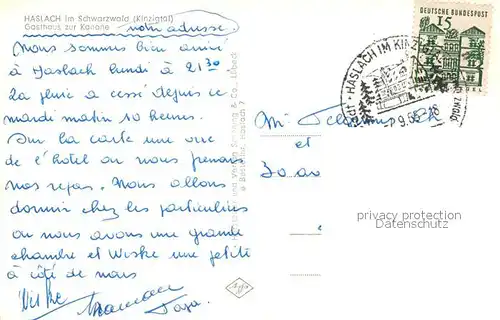 HASLACH im Schwarzwald (Kinzigtal)
Gasthaus zur Kanone
notre adresse
Nous sommes bien arrivé
à Haslach lundi à 21 30
La pluie a cessé depuis ce
mardi matin 10 heures.
Sur la carte une vue
de l'hôtel où nous prenons
nos repas. Nous allons
dormir chez les particuliers
où nous avons une grande
chambre et Wiske une petite
à côté de nous
Wiske
Maman
Papa.
Mr
et
30 av
DEUTSCHE BUNDESPOST
15
HASLACH IM KINZIG
privacy protection